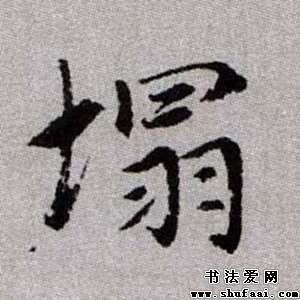 塌
书法爱网
www.shufaai.com